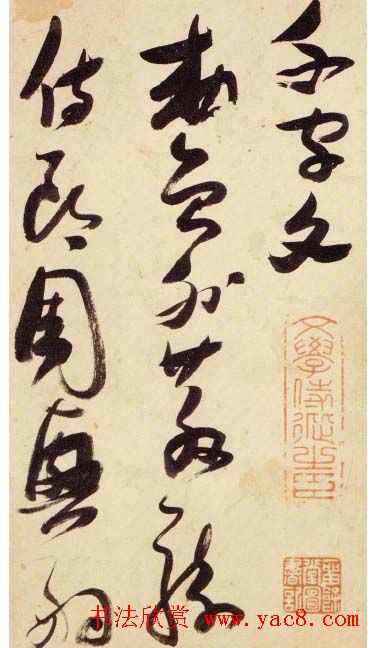 千字文
敕員外散騎
侍郎周興嗣
文學侍從之臣
书法欣赏 www.yac8.com